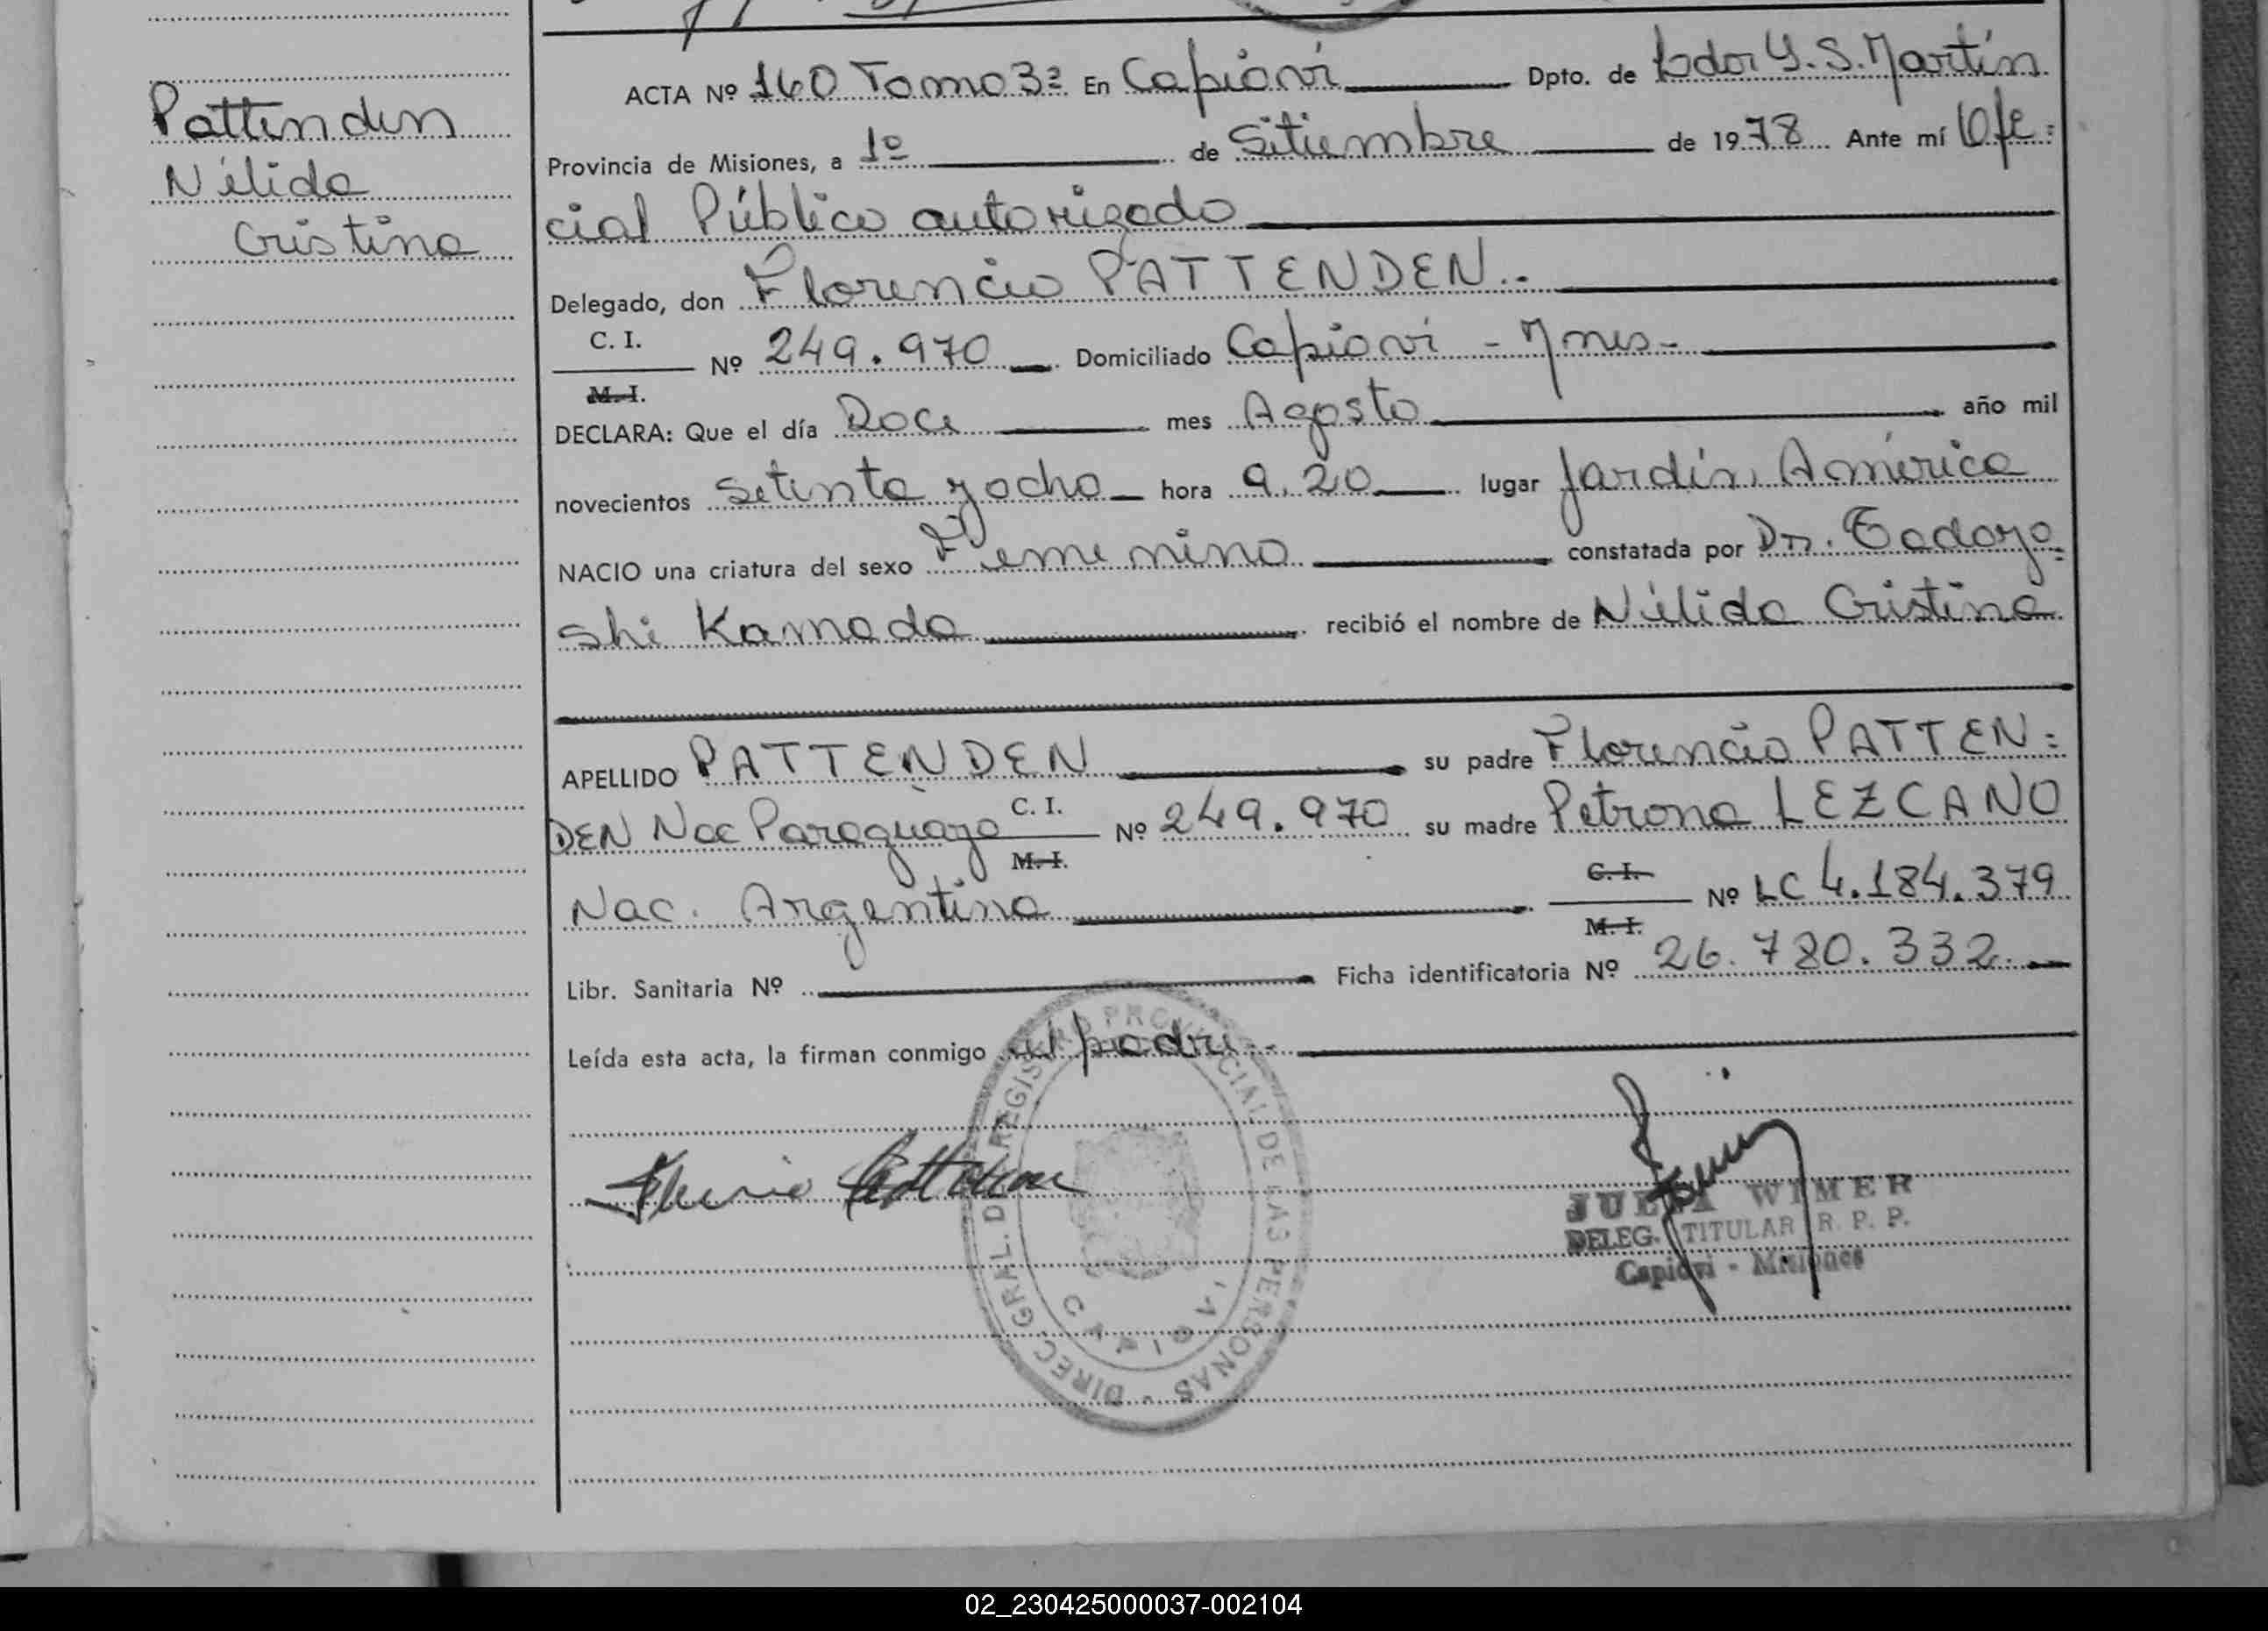 Pattenden
Nélida
Cristina
ACTA Nº 160 Tomo 3º En Capioví Dpto. de Ldor G. S. Martín
Provincia de Misiones, a 1º de Setiembre de 1978 Ante mí Ofi=
cial Público autorizado
Delegado, don Florencio PATTENDEN.-
C. I.
Nº 249.970 Domiciliado Capioví - Mnes-
M. I.
DECLARA: Que el día Doce mes Agosto año mil
novecientos setenta y ocho hora 9.20 lugar Jardín América
NACIO una criatura del sexo Femenino constatada por Dr. Tadayo=
shi Kamada recibió el nombre de Nélida Cristina
APELLIDO PATTENDEN su padre Florencio PATTEN=
DEN Nac Paraguayo C. I. Nº 249.970 su madre Petrona LEZCANO
M. I.
Nac. Argentina C. I. Nº LC 4.184.379
M. I.
Libr. Sanitaria Nº Ficha identificatoria Nº 26.780.332.
Leída esta acta, la firman conmigo el padre.-
DIREC. GRAL. DE REGISTRO PROVINCIAL DE LAS PERSONAS -
CAPIOVI
JULIA WIMER
DELEG. TITULAR R. P. P.
Capioví - Misiones
02_230425000037-002104